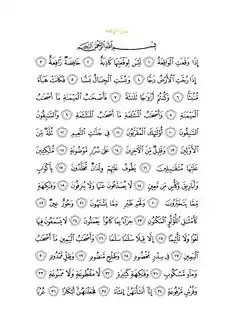 سورة الواقعة
بِسْمِ اللَّهِ الرَّحْمَٰنِ الرَّحِيمِ
إِذَا وَقَعَتِ الْوَاقِعَةُ ١ لَيْسَ لِوَقْعَتِهَا كَاذِبَةٌ ٢ خَافِضَةٌ رَّافِعَةٌ ٣
إِذَا رُجَّتِ الْأَرْضُ رَجًّا ٤ وَبُسَّتِ الْجِبَالُ بَسًّا ٥ فَكَانَتْ هَبَاءً
مُّنبَثًّا ٦ وَكُنتُمْ أَزْوَاجًا ثَلَاثَةً ٧ فَأَصْحَابُ الْمَيْمَنَةِ مَا أَصْحَابُ
الْمَيْمَنَةِ ٨ وَأَصْحَابُ الْمَشْأَمَةِ مَا أَصْحَابُ الْمَشْأَمَةِ ٩ وَالسَّابِقُونَ
السَّابِقُونَ ١٠ أُولَٰئِكَ الْمُقَرَّبُونَ ١١ فِي جَنَّاتِ النَّعِيمِ ١٢ ثُلَّةٌ مِّنَ
الْأَوَّلِينَ ١٣ وَقَلِيلٌ مِّنَ الْآخِرِينَ ١٤ عَلَىٰ سُرُرٍ مَّوْضُونَةٍ ١٥ مُّتَّكِئِينَ
عَلَيْهَا مُتَقَابِلِينَ ١٦ يَطُوفُ عَلَيْهِمْ وِلْدَانٌ مُّخَلَّدُونَ ١٧ بِأَكْوَابٍ
وَأَبَارِيقَ وَكَأْسٍ مِّن مَّعِينٍ ١٨ لَّا يُصَدَّعُونَ عَنْهَا وَلَا يُنزِفُونَ ١٩ وَفَاكِهَةٍ
مِّمَّا يَتَخَيَّرُونَ ٢٠ وَلَحْمِ طَيْرٍ مِّمَّا يَشْتَهُونَ ٢١ وَحُورٌ عِينٌ ٢٢
كَأَمْثَالِ اللُّؤْلُؤِ الْمَكْنُونِ ٢٣ جَزَاءً بِمَا كَانُوا يَعْمَلُونَ ٢٤ لَا يَسْمَعُونَ فِيهَا
لَغْوًا وَلَا تَأْثِيمًا ٢٥ إِلَّا قِيلًا سَلَامًا سَلَامًا ٢٦ وَأَصْحَابُ الْيَمِينِ مَا أَصْحَابُ
الْيَمِينِ ٢٧ فِي سِدْرٍ مَّخْضُودٍ ٢٨ وَطَلْحٍ مَّنضُودٍ ٢٩ وَظِلٍّ مَّمْدُودٍ ٣٠
وَمَاءٍ مَّسْكُوبٍ ٣١ وَفَاكِهَةٍ كَثِيرَةٍ ٣٢ لَّا مَقْطُوعَةٍ وَلَا مَمْنُوعَةٍ ٣٣
وَفُرُشٍ مَّرْفُوعَةٍ ٣٤ إِنَّا أَنشَأْنَاهُنَّ إِنشَاءً ٣٥ فَجَعَلْنَاهُنَّ أَبْكَارًا ٣٦ عُرُبًا